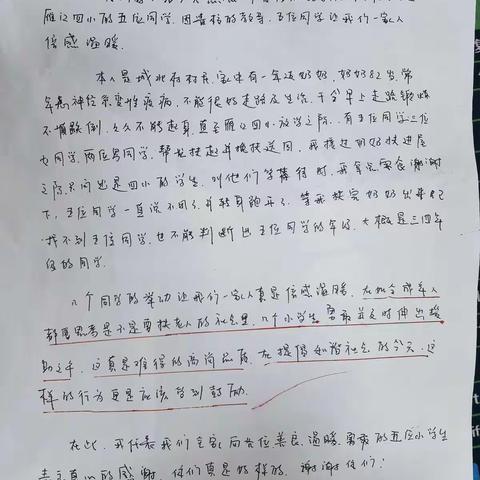 雁江四小的五位同学,因贵校的教育,五位同学让我们一家人
倍感温暖。
本人是城北市村民,家中有一年迈奶奶,奶奶82岁,常
年患神经系统性疾病,不能很好走路及生活,于今早上走路锻炼
不慎跌倒,久久不能起身,直至雁江四小放学之际,有五位同学三位
女同学,两位男同学,帮忙扶起并搀扶送回,我接过奶奶扶进屋
之际,只问出是四小的学生,叫他们等等待时,我拿点零食谢谢
下,五位同学一直说不用了,并转身跑开了。等我扶完奶奶出来已
找不到五位同学,也不能判断出五位同学的年级,大概是三四年
级的同学。
几个同学的举动让我们一家人真是倍感温暖,在如今成年人
都要思考是不是要扶老人的社会里,几个小学生勇敢并及时伸出援
助之手,这真是难得的高尚品质,在提倡和谐社会的今天,这
样的行为更是应该得到鼓励。
在此,我代表我们全家向其位善良、温暖、勇敢的五位小学生
表示真心的感谢,你们真是好样的,谢谢你们!